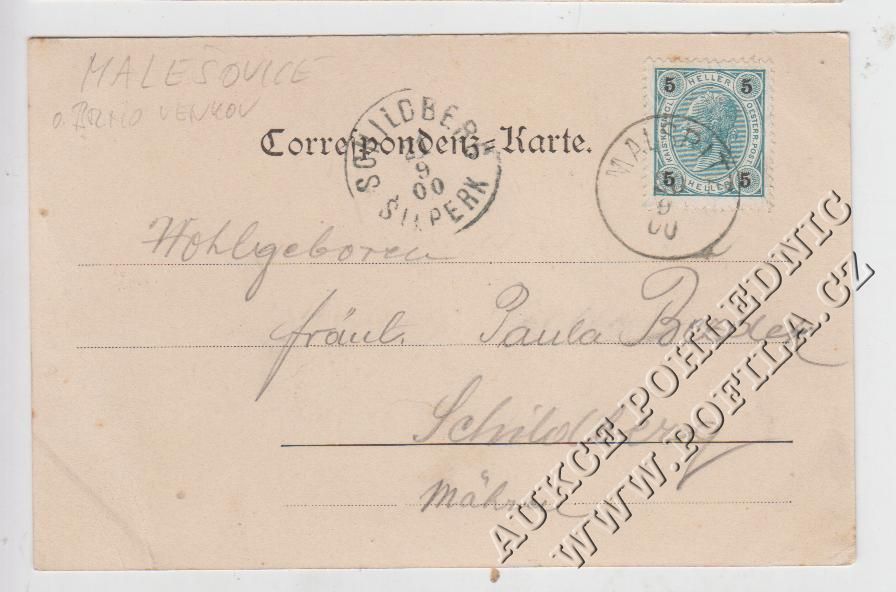 MALEŠOVICE
o. BRNO VENKOV
Correspondenz-Karte.
SCHILDBERG
9
00
ŠILPERK
5 HELLER 5
KAIS. KÖNIGL.
OESTERR. POST
5 HELLER 5
9
00
Wohlgeboren
Fräul. Paula
Schildberg
Mähren
AUKCE POHLEDNIC
WWW.POFILA.CZ